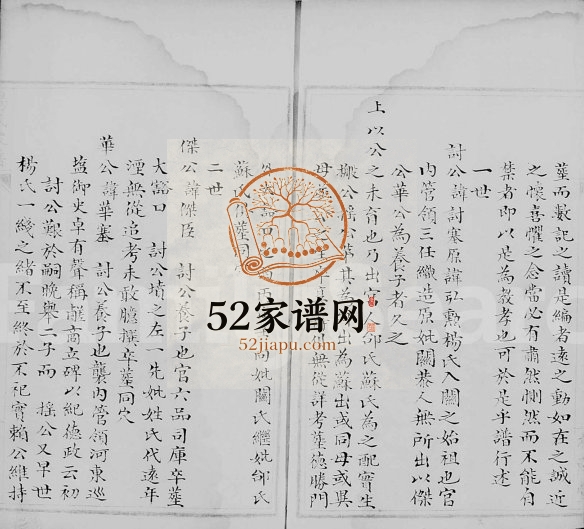 塟而數記之讀是編者遠之動如在之誠近
之懷喜懼之念當必有肅然惻然而不能自
禁者即以是為敎孝也可於是乎譜行述
一世
討公諱討塞原諱弘勲楊氏入關之始祖也官
內管領三任織造原妣關恭人無所出以傑
公華公為養子者久之
上以公之未育也乃出宮人邰氏蘇氏為之配實生
出為蘇出或同母或異
無從詳考塟德勝門
妣關氏繼妣邰氏
蘇氏
二世
傑公諱傑臣 討公養子也官六品司庫卒塟
大豁口 討公墳之左一先妣姓氏代遠年
湮無從追考未敢臆撰卒塟同穴
華公諱華塞 討公養子也襲內管領河東巡
鹽御史卓有聲稱離商立碑以紀德政云初
討公艱於嗣晚舉二子而 搖公又早世
楊氏一綫之緒不至終於不祀實賴公維持
52家谱网
52jiapu.com